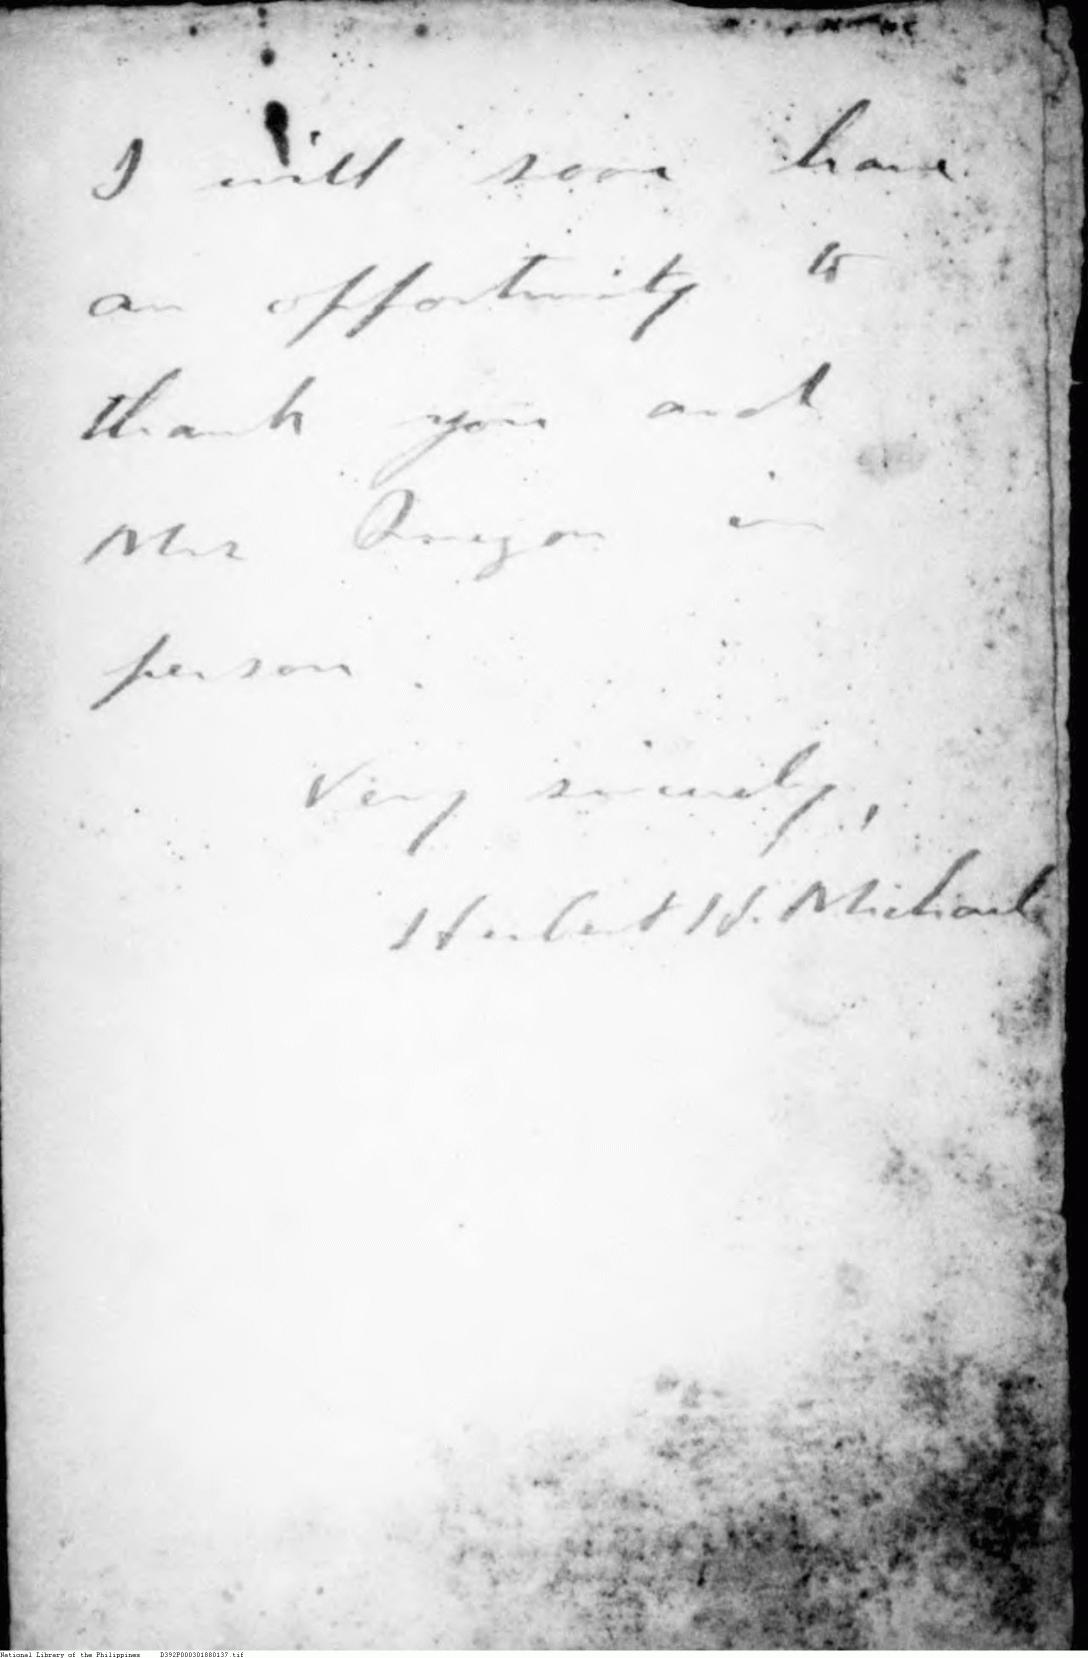 I will soon have
an opportunity to
thank you and
Mrs Quezon in
person.
Very sincerely,
Herbert W. Michael
National Library of the Philippines D392P000301880137.tif